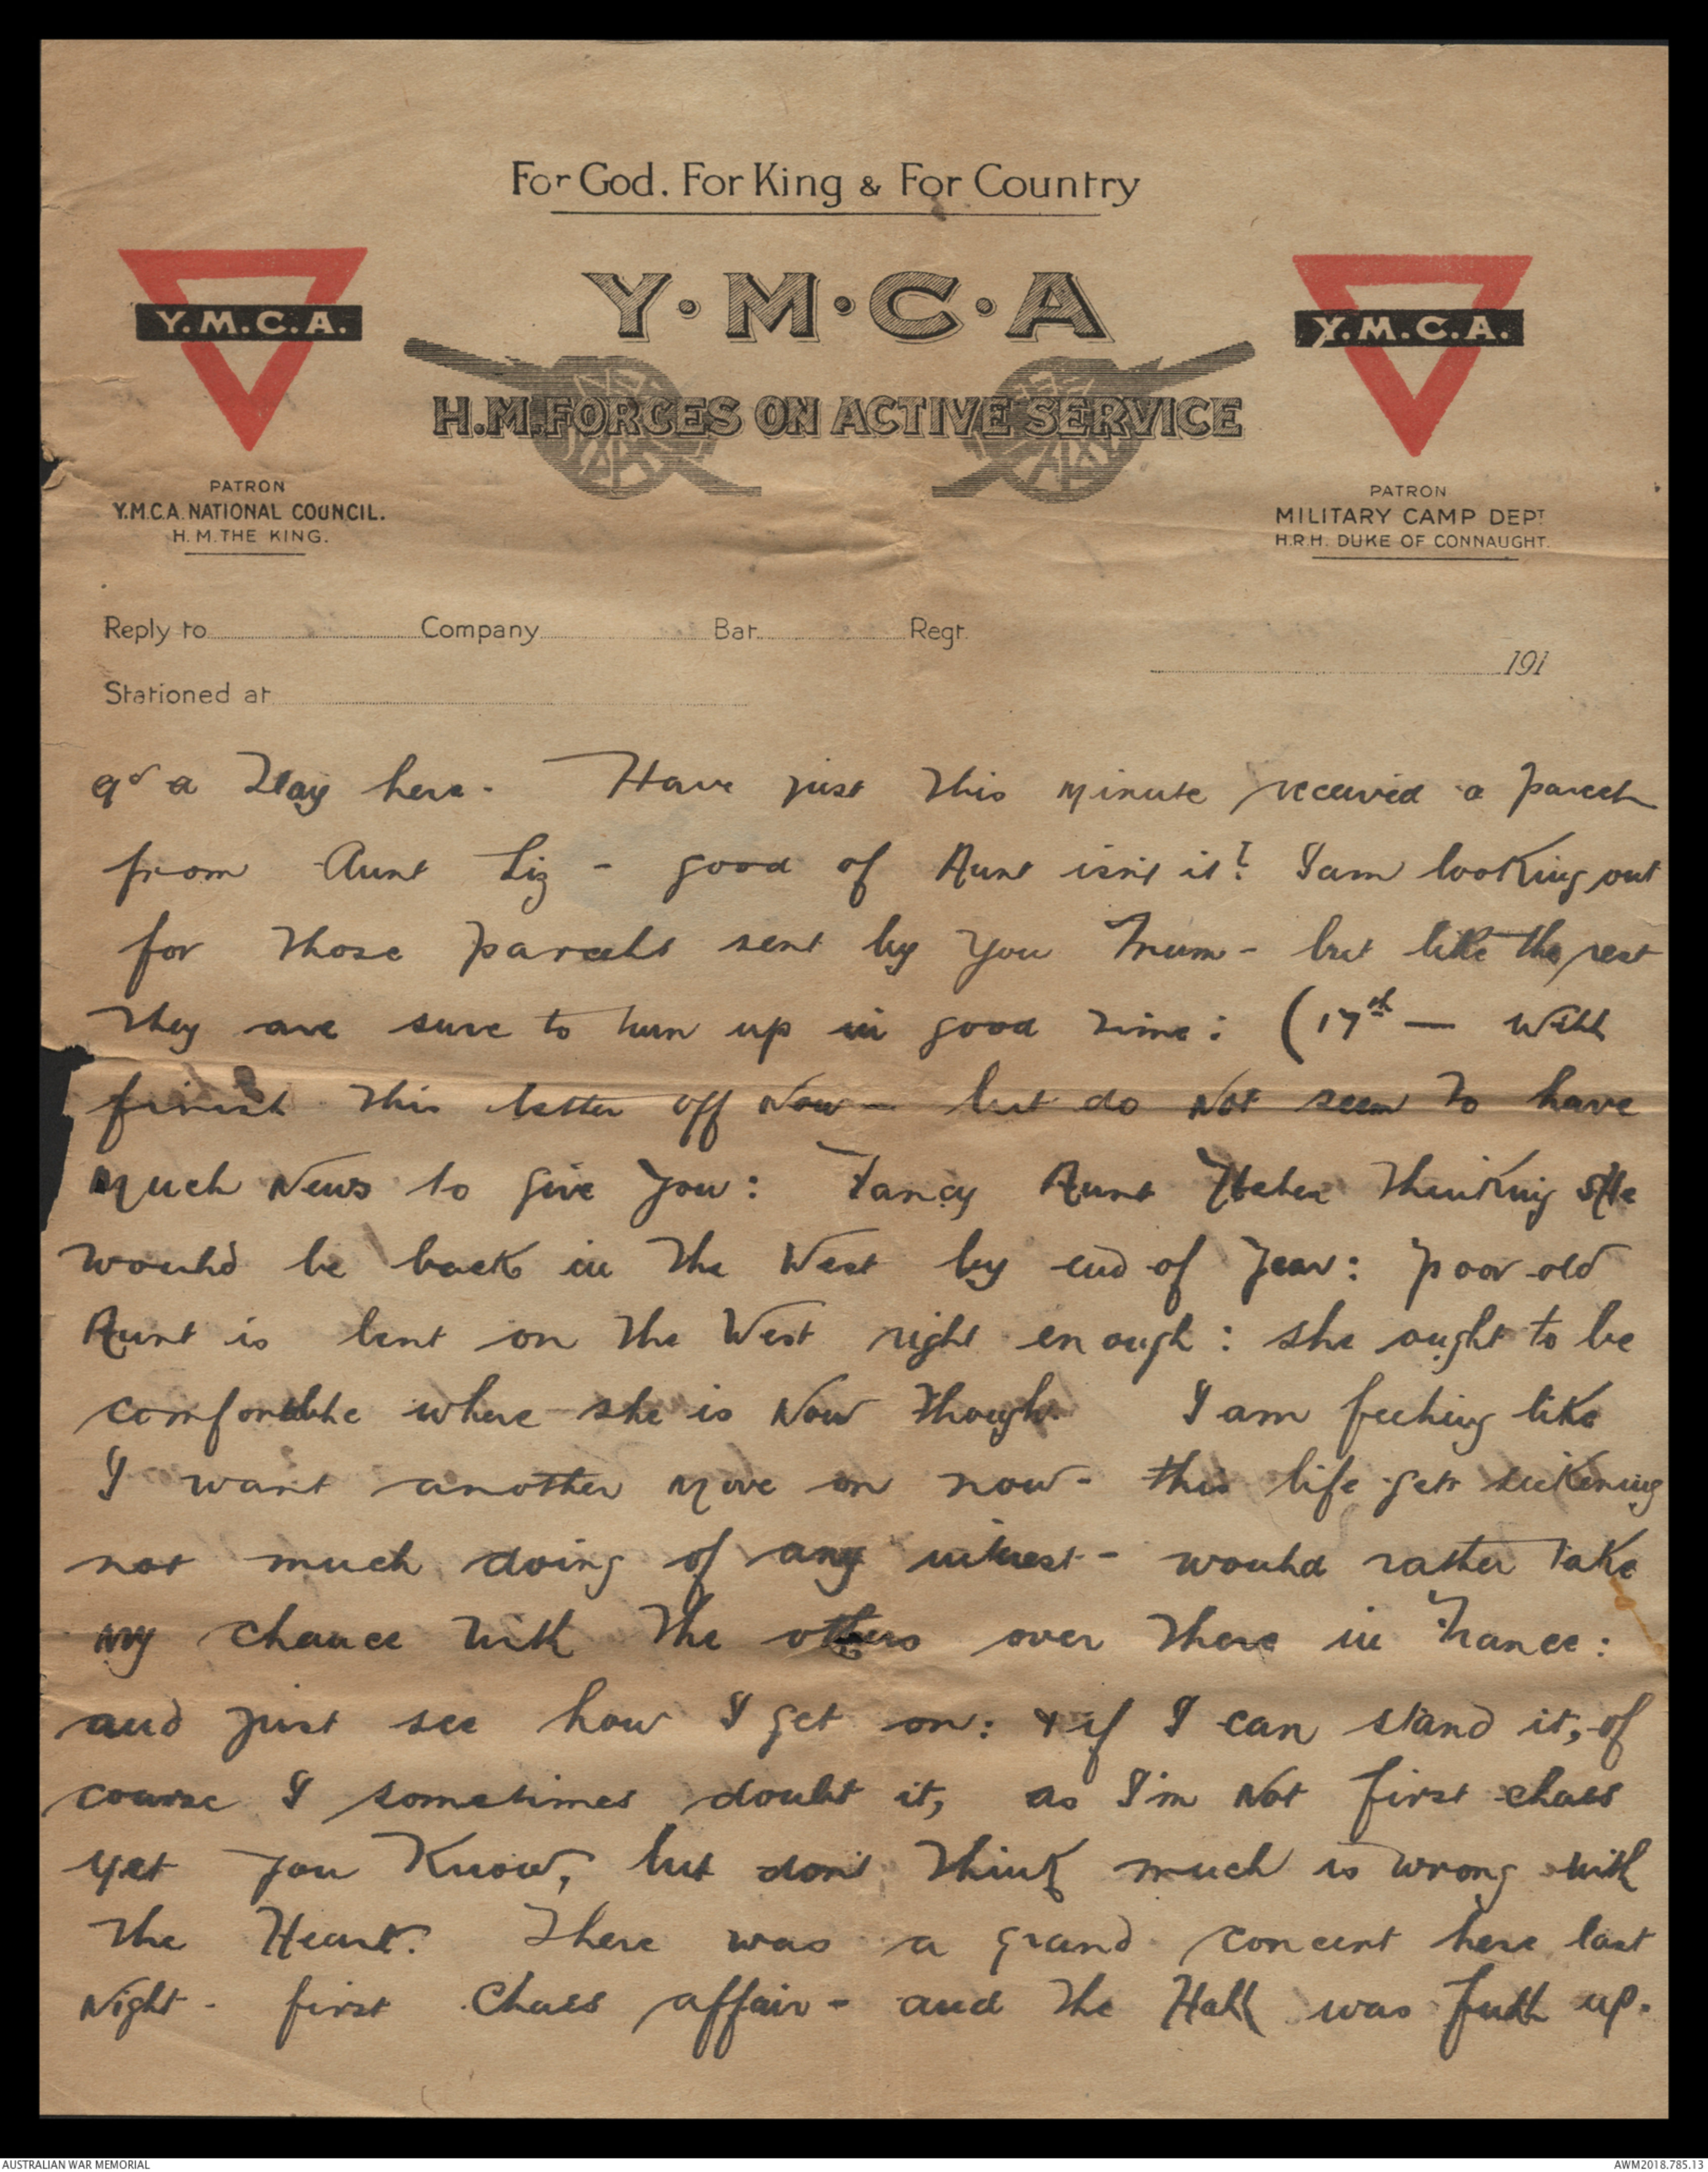 For God. For King & For Country
Y.M.C.A.
Y·M·C·A
Y.M.C.A.
H.M. FORCES ON ACTIVE SERVICE
PATRON
Y.M.C.A. NATIONAL COUNCIL.
H.M. THE KING.
PATRON
MILITARY CAMP DEPT
H.R.H. DUKE OF CONNAUGHT.
Reply to Company Bat. Regt.
191
Stationed at
9d a day here. Have just this minute received a parcel
from Aunt Liz - good of Aunt isn't it? I am looking out
for those parcels sent by you Mum - but like the rest
they are sure to turn up in good time: (17th — Will
finish this letter off now - but do not seem to have
much news to give you: Fancy Aunt thinking she
would be back in the West by end of year: poor old
Aunt is bent on the West right enough: she ought to be
comfortable where she is now though. I am feeling like
I want another move on now - this life gets sickening
not much doing of any interest - would rather take
my chance with the others over there in France:
and just see how I get on: & if I can stand it, of
course I sometimes doubt it, as I'm not first class
yet you know, but don't think much is wrong with
the Heart. There was a grand concert here last
night - first class affair - and the Hall was full up.
AUSTRALIAN WAR MEMORIAL
AWM2018.785.13